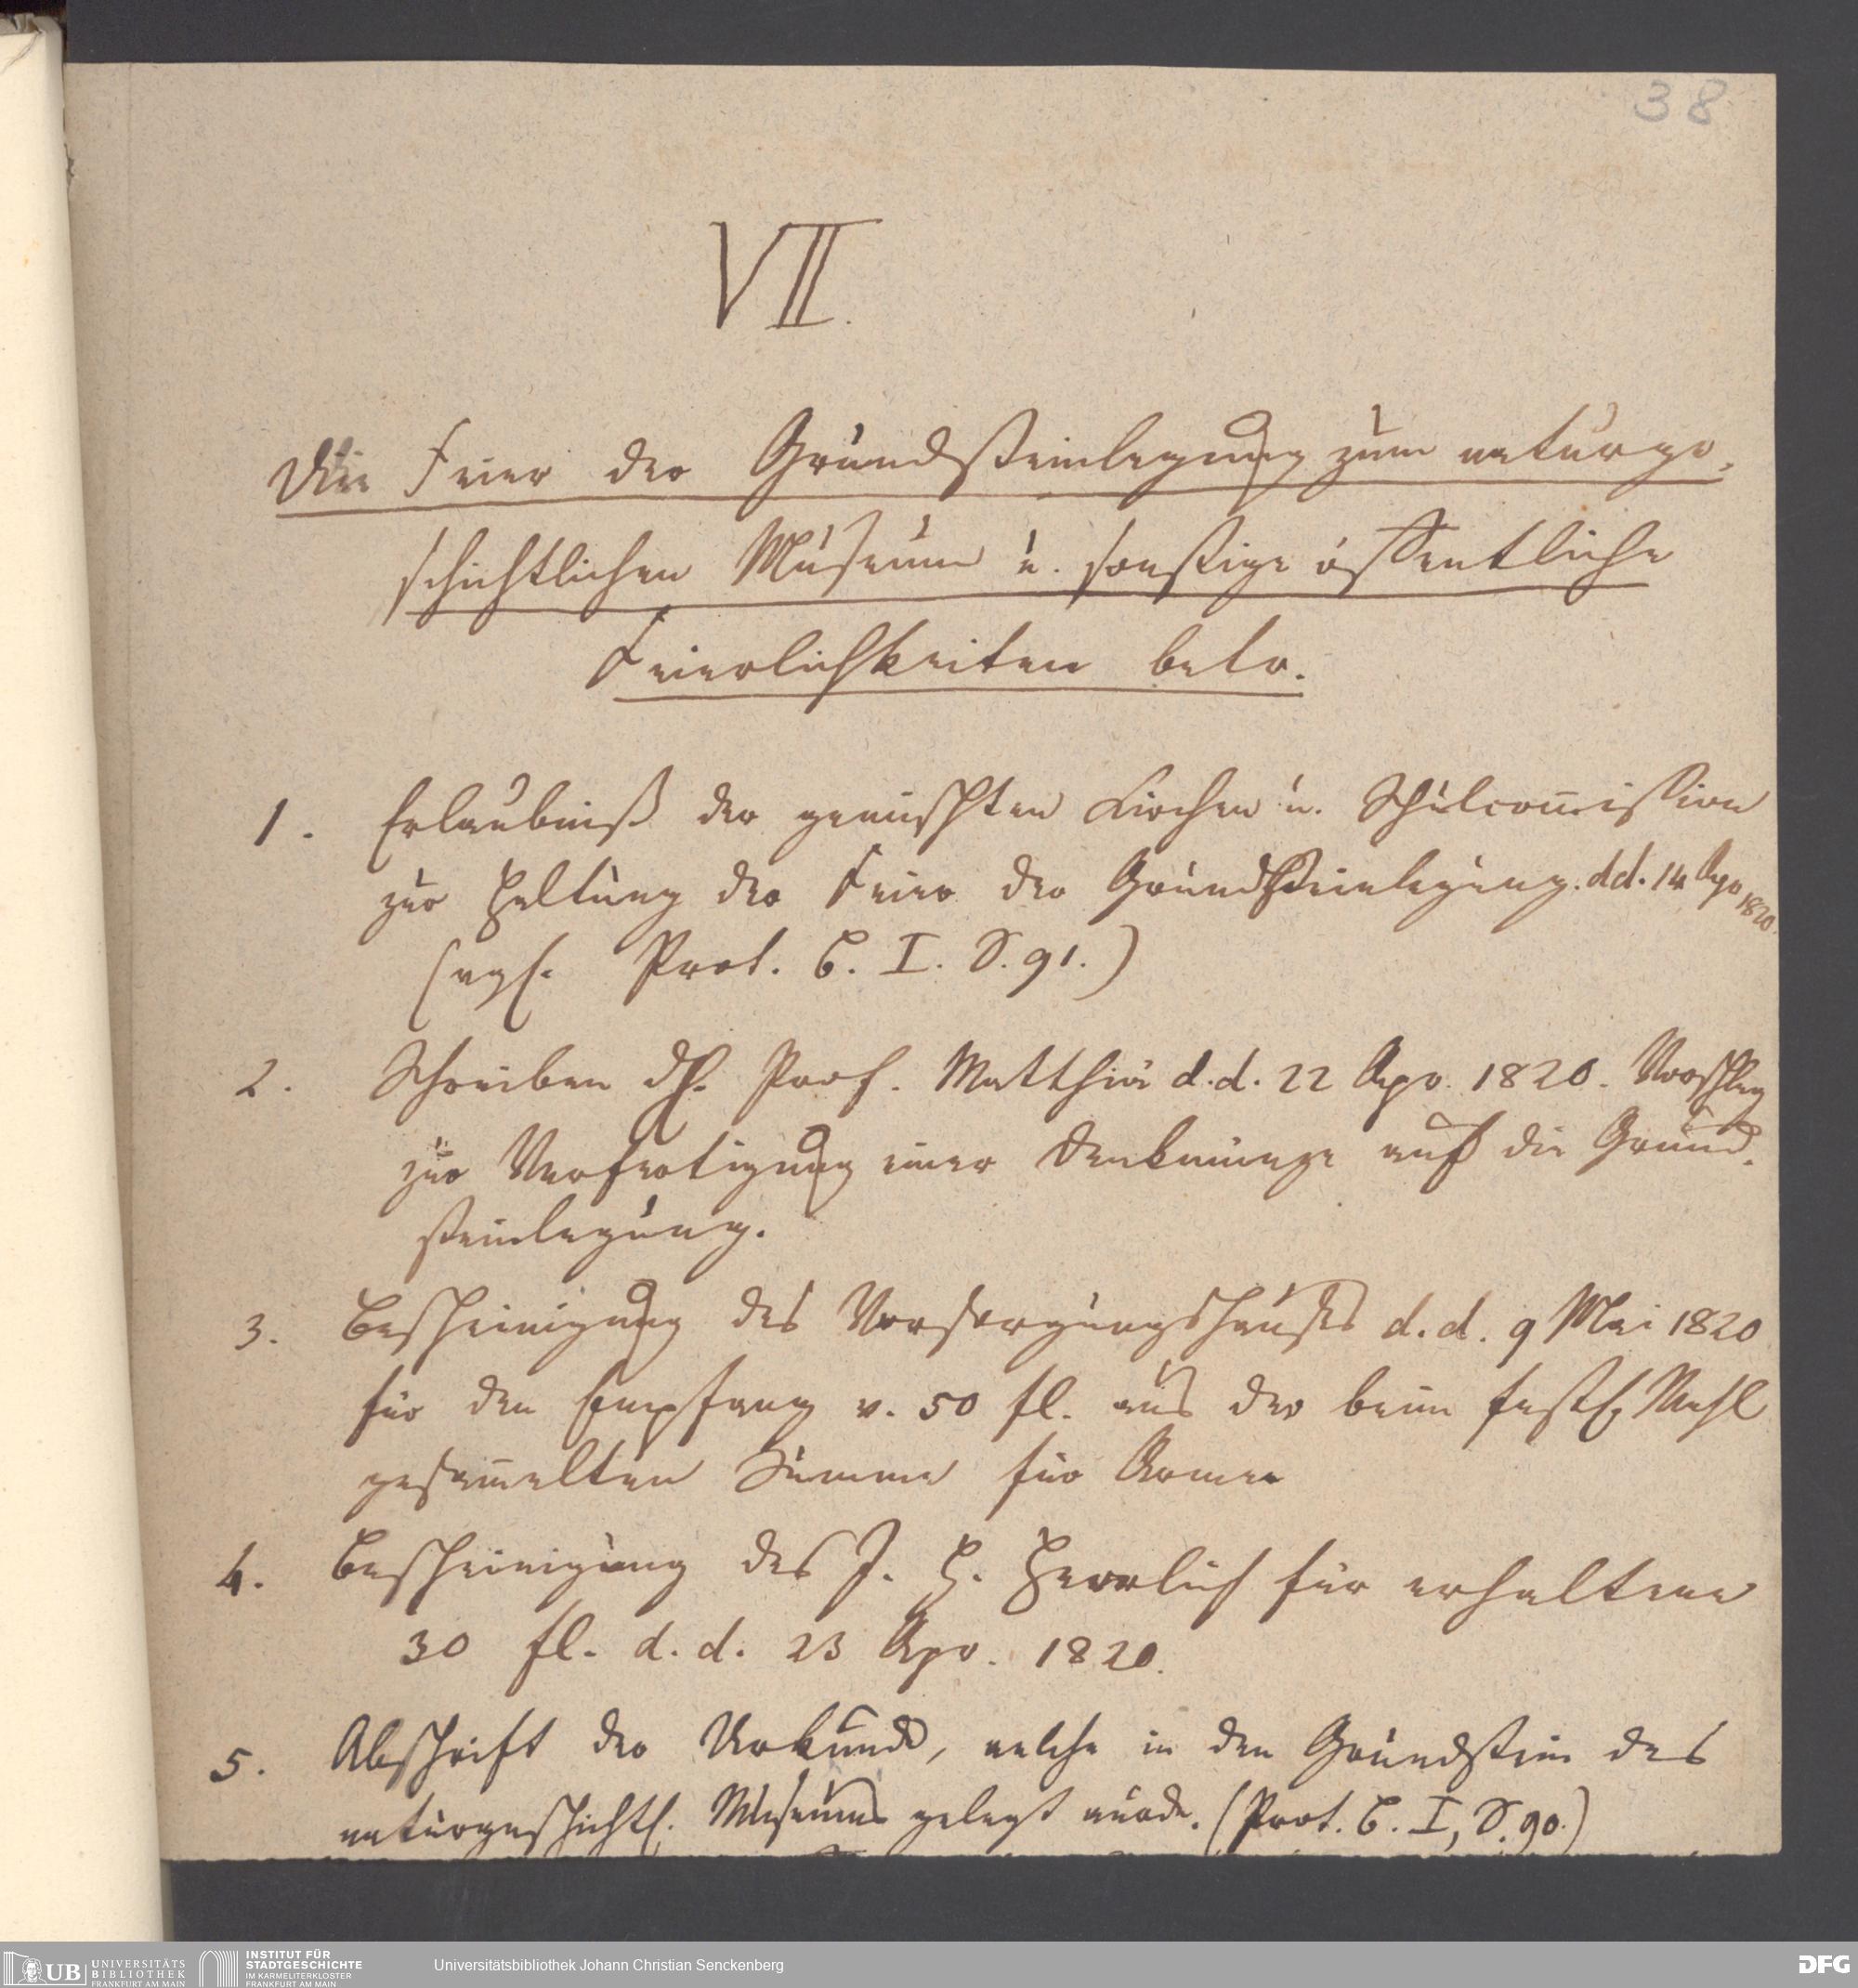 38
VII.
Die Feier der Grundsteinlegung zum naturge-
schichtlichen Museum u. sonstige öffentliche
Feierlichkeiten betr.
1. Erlaubniß der gemischten Kirchen u. Schulcom̅ission
zur Haltung der Feier der Grundsteinlegung. dd. 14 Apr 1820.
(vgl. Prot. B. I. S. 91.)
2. Schreiben dH. Prof. Matthiä d.d. 22 Apr. 1820. Vorschlag
zur Verfertigung einer Denkmünze auf die Grund-
steinlegung.
3. Bescheinigung des Versorgungshauses d.d. 9 Mai 1820
für den Empfang v. 50 fl. aus der beim festl. Mahl
gesam̅elten Summe für Arme
4. Bescheinigung des J. H. Herrlich für erhaltene
30 fl. d.d. 23 Apr. 1820.
5. Abschrift der Urkunde, welche in den Grundstein des
naturgeschichtl. Museums gelegt wurde. (Prot. B. I, S. 90.)
UB UNIVERSITÄTS
BIBLIOTHEK
FRANKFURT AM MAIN
INSTITUT FÜR
STADTGESCHICHTE
IM KARMELITERKLOSTER
FRANKFURT AM MAIN
Universitätsbibliothek Johann Christian Senckenberg
DFG